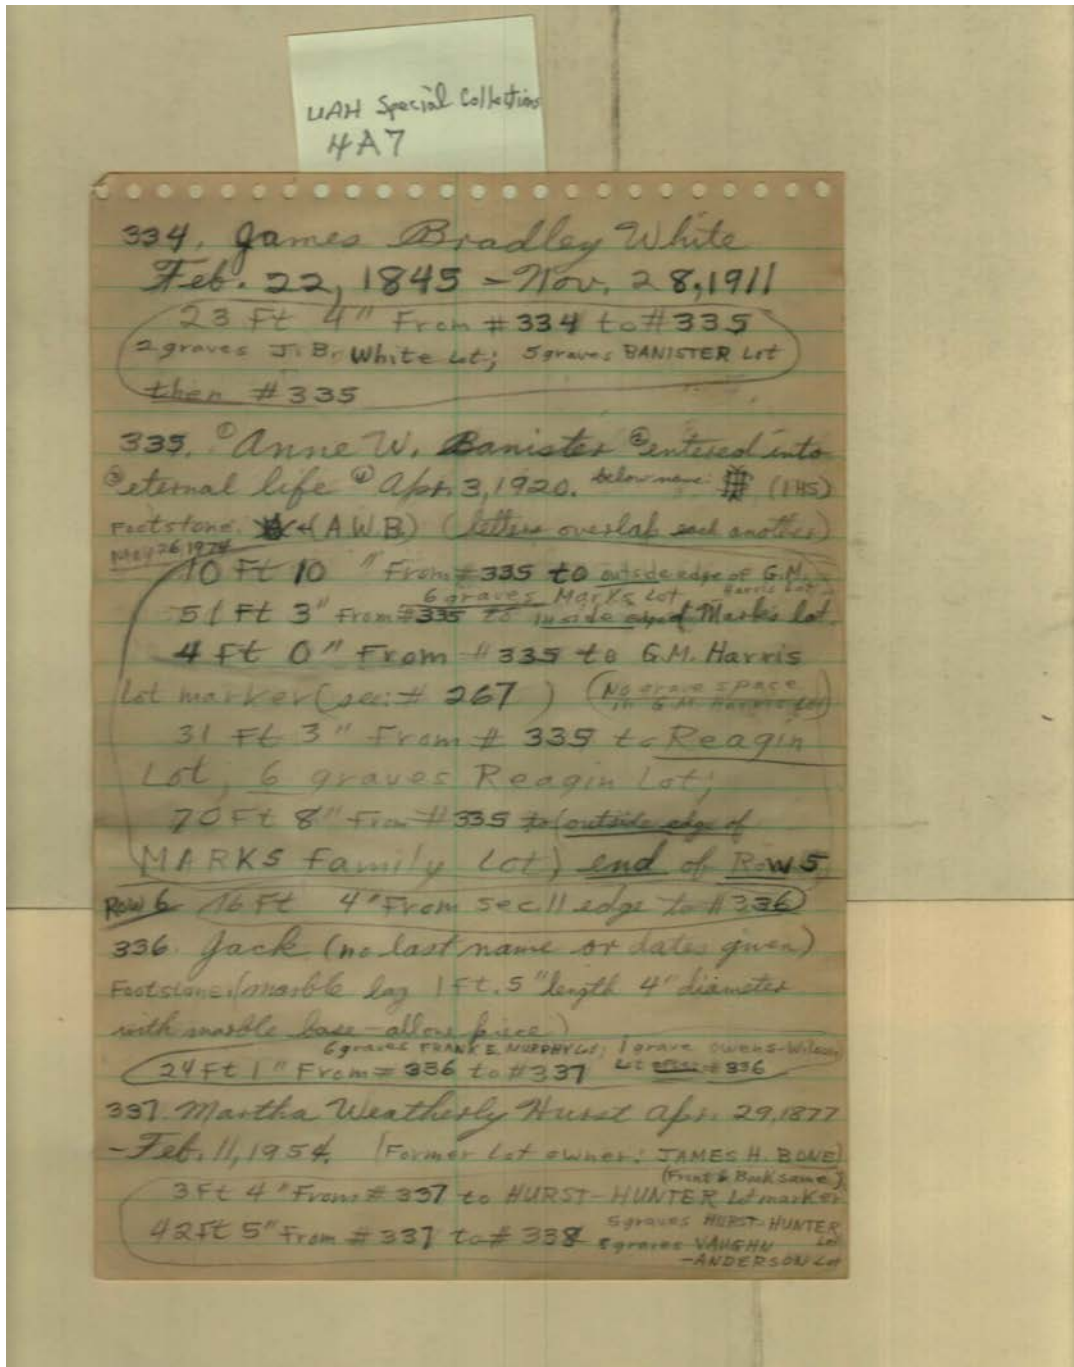 UAH Special Collections
4A7
334. James Bradley White
Feb. 22, 1845 – Nov. 28, 1911
23 Ft 4" From #334 to #335
2 graves J. B. White Lot; 5 graves BANISTER Lot
then #335
335. ① Anne W. Banister ② entered into
③ eternal life ④ Apr. 3, 1920. below name: (IHS)
Footstone: (A.W.B.) (letters overlap each another)
May 26, 1974
10 Ft 10 " From #335 to outside edge of G.M.
Harris Lot
6 graves Marks Lot
51 Ft 3" From #335 to inside edge of Marks lot.
4 Ft 0" From #335 to G.M. Harris
Lot marker (see: # 267 ) (No grave space
in G.M. Harris Lot)
31 Ft 3" From # 335 to Reagin
Lot, 6 graves Reagin Lot;
70 Ft 8" From #335 to (outside edge of
MARKS Family Lot) end of Row 5
Row 6 16 Ft 4" From sec. 11 edge to #336
336. Jack (no last name or dates given)
Footstone: (marble log 1 ft. 5" length 4" diameter
with marble base – all one piece)
6 graves FRANK E. MURPHY Lot; 1 grave Owens-Wilson
24 Ft 1" From #336 to #337 Lot after #336
337. Martha Weatherly Hurst Apr. 29, 1877
– Feb. 11, 1954. (Former Lot owner: JAMES H. BONE)
(Front & Back same)
3 Ft 4" From #337 to HURST-HUNTER Lot marker
42 Ft 5" From #337 to #338 5 graves HURST-HUNTER
Lot
8 graves VAUGHN
-ANDERSON Lot